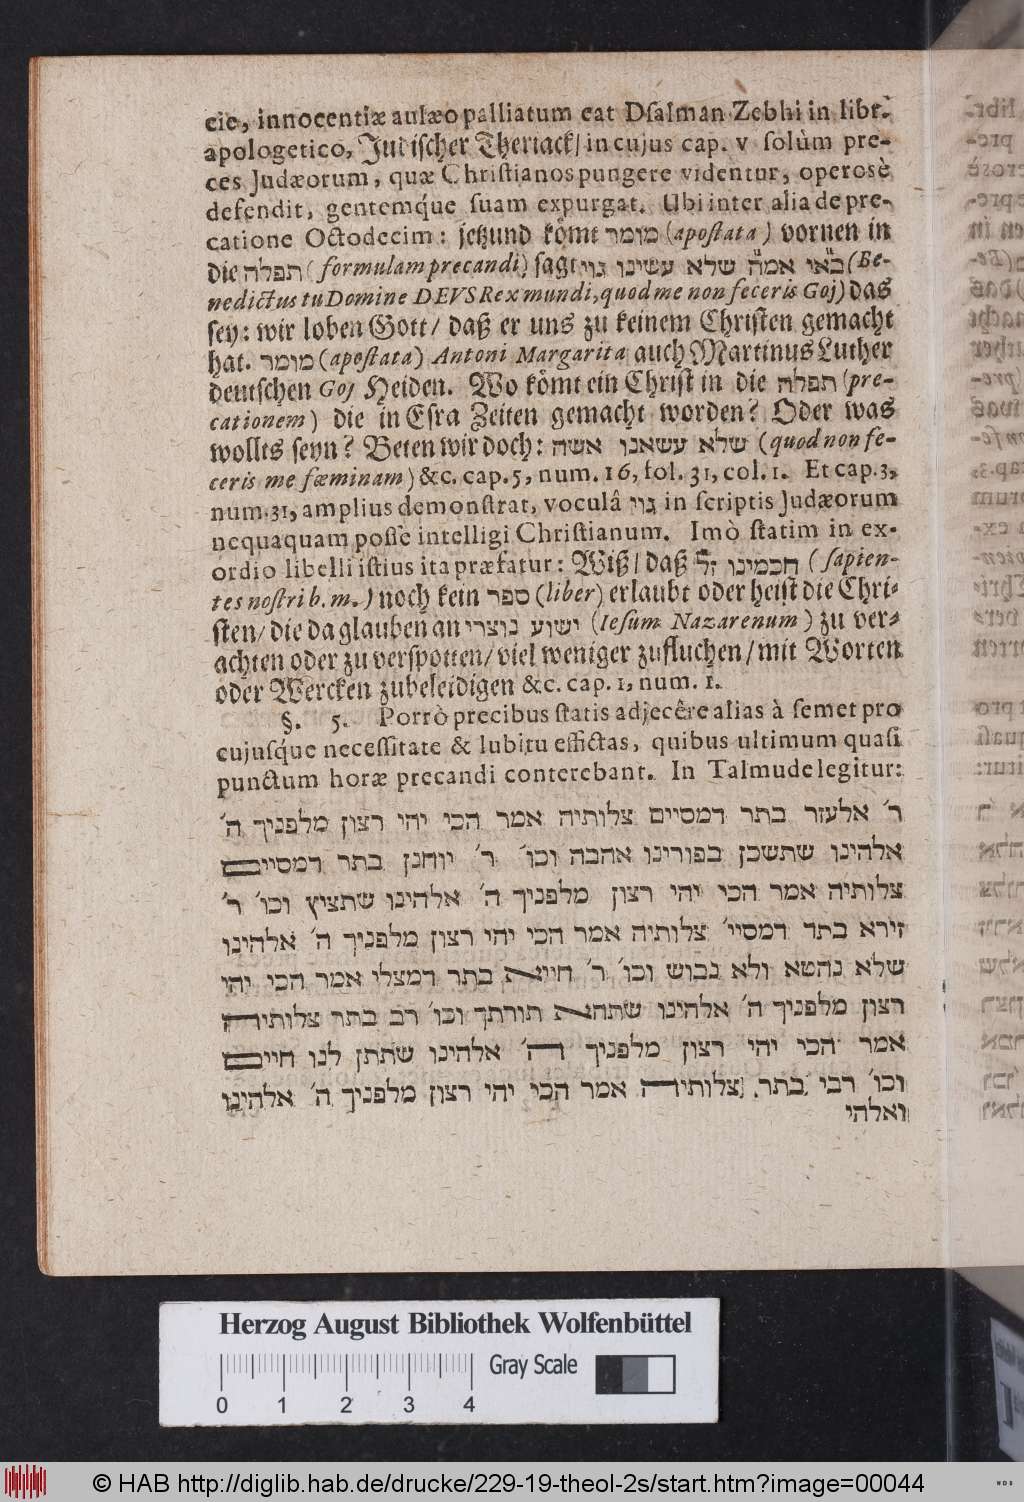 cie, innocentiæ aulæo palliatum eat Dsalman Zebhi in libr.
apologetico, Judischer Theriack/ in cujus cap. v solùm pre-
ces Judæorum, quæ Christianos pungere videntur, operosè
defendit, gentemq́ue suam expurgat. Ubi inter alia de pre-
catione Octodecim: jetzund kömt מומר (apostata) vornen in
die תפלה (formulam precandi) sagt בא״י אמ״ה שלא עשינו גוי (Be-
nedictus tu Domine DEVS Rex mundi, quod me non feceris Goj) das
sey: wir loben Gott/ daß er uns zu keinem Christen gemacht
hat. מומר (apostata) Antoni Margarita auch Martinus Luther
deutschen Goj Heiden. Wo kömt ein Christ in die תפלה (pre-
cationem) die in Esra Zeiten gemacht worden? Oder was
wollts seyn? Beten wir doch: שלא עשאנו אשה (quod non fe-
ceris me fœminam) &c. cap. 5, num. 16, fol. 31, col. 1. Et cap. 3,
num. 31, amplius demonstrat, voculâ גוי in scriptis Judæorum
nequaquam posse intelligi Christianum. Imò statim in ex-
ordio libelli istius ita præfatur: Wiß/ daß חכמינו ז״ל (sapien-
tes nostri b. m.) noch kein ספר (liber) erlaubt oder heist die Chri-
sten/ die da glauben an ישוע נוצרי (Iesum Nazarenum) zu ver-
achten oder zu verspotten/ viel weniger zufluchen/ mit Worten
oder Wercken zubeleidigen &c. cap. 1, num. 1.
§. 5. Porrò precibus statis adjecêre alias à semet pro
cujusq́ue necessitate & lubitu effictas, quibus ultimum quasi
punctum horæ precandi conterebant. In Talmude legitur:
ר׳ אלעזר בתר דמסיים צלותיה אמר הכי יהי רצון מלפניך ה׳
אלהינו שתשכן בפורינו אהבה וכו׳ ר׳ יוחנן בתר דמסיים
צלותיה אמר הכי יהי רצון מלפניך ה׳ אלהינו שתציץ וכו׳ ר׳
זירא בתר דמסיי׳ צלותיה אמר הכי יהי רצון מלפניך ה׳ אלהינו
שלא נהטא ולא נבוש וכו׳ ר׳ חייא בתר דמצלי אמר הכי יהי
רצון מלפניך ה׳ אלהינו שתהא תורתך וכו׳ רב בתר צלותיה
אמר הכי יהי רצון מלפניך ה׳ אלהינו שתתן לנו חיים
וכו׳ רבי בתר צלותיה אמר הכי יהי רצון מלפניך ה׳ אלהינו
ואלהי
Herzog August Bibliothek Wolfenbüttel
Gray Scale
0 1 2 3 4
© HAB http://diglib.hab.de/drucke/229-19-theol-2s/start.htm?image=00044